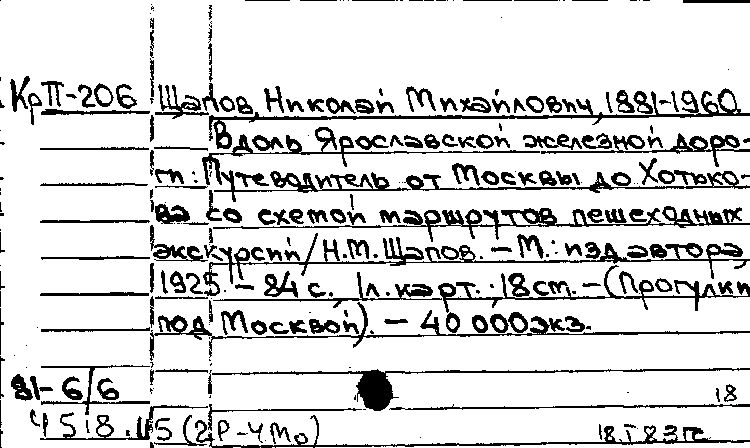 КрП-206 Щапов, Николай Михайлович, 1881-1960.
Вдоль Ярославской железной доро-
ги: Путеводитель от Москвы до Хотько-
ва со схемой маршрутов пешеходных
экскурсий / Н.М. Щапов. – М.: изд. автора,
1925. – 84 с., 1л. карт.; 18 см. – (Прогулки
под Москвой). – 40 000 экз.
81-6/6 18
(2Р-4Мо)